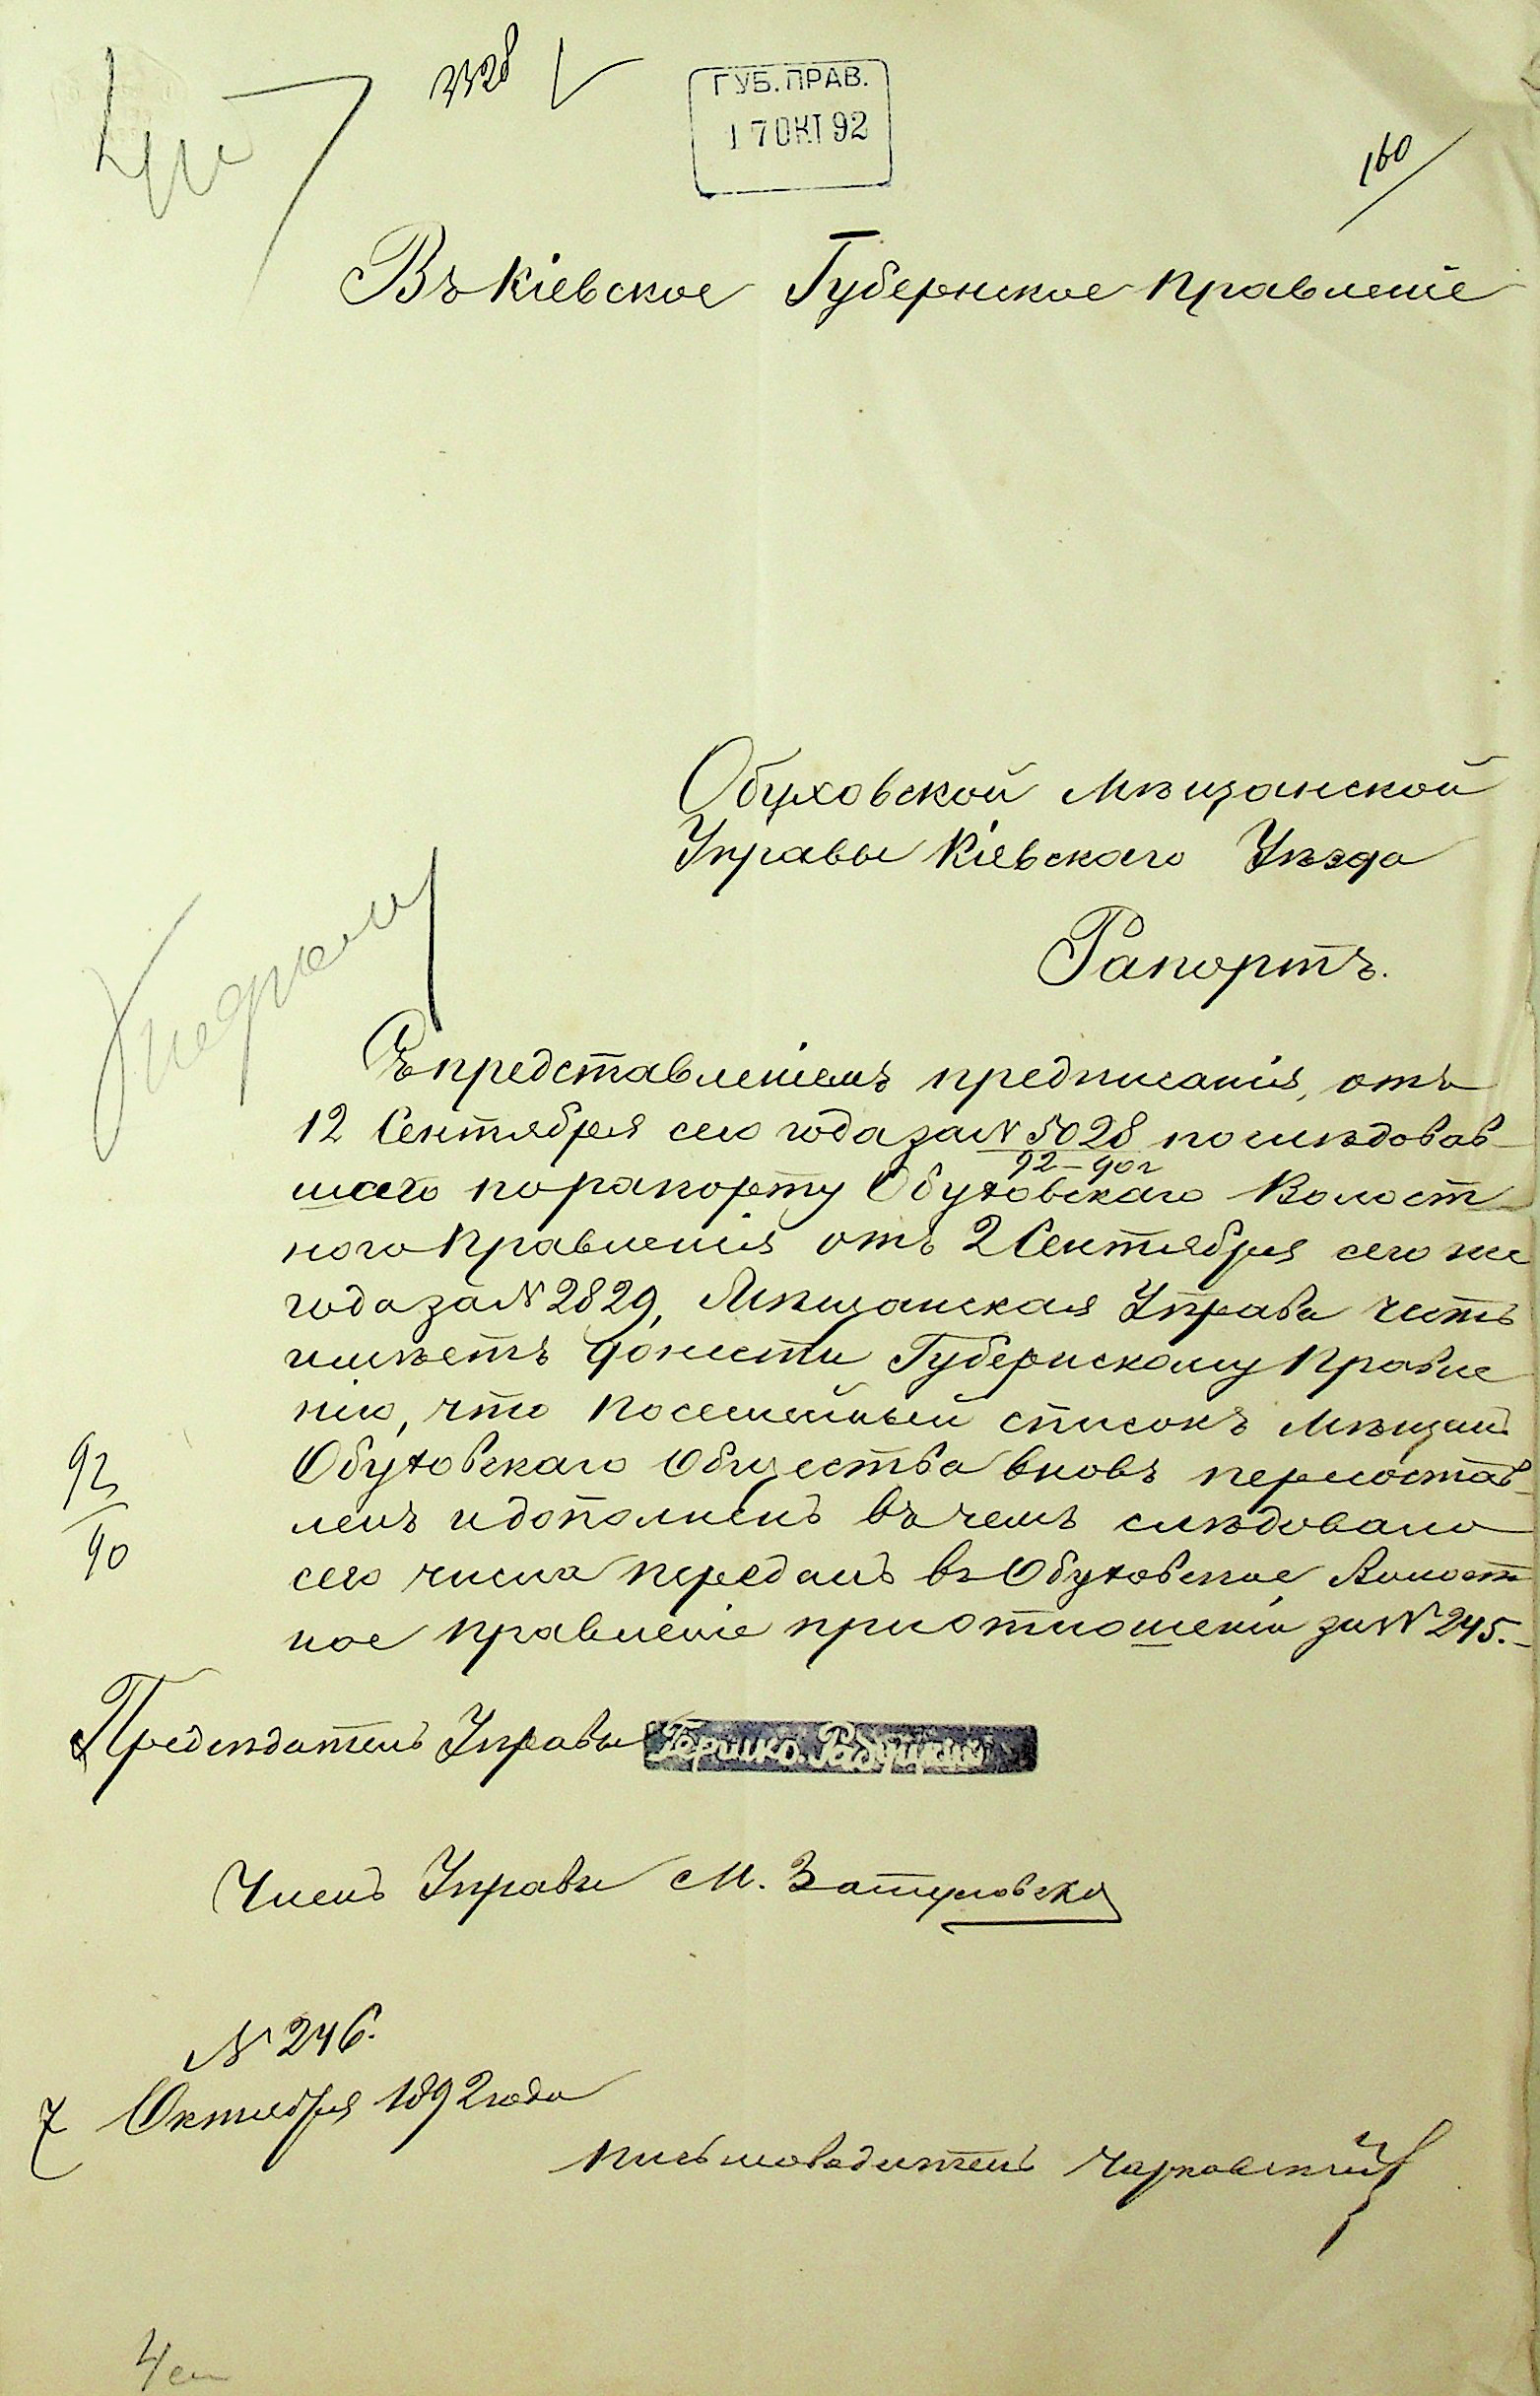 3328
ГУБ. ПРАВ.
17 ОКТ 92
160
Въ Кіевское Губернское Правленіе
Обуховской Мѣщанской
Управы Кіевскаго Уѣзда
Рапортъ.
Съ представленіемъ предписанія, отъ
12 Сентября сего года за № 5028 послѣдовав-
92-90г
шаго по рапорту Обуховскаго Волост
ного Правленія отъ 2 Сентября сего же
года за № 2829, Мѣщанская Управа честь
имѣетъ донести Губернскому Правле
нію, что посемейный списокъ мѣщан.
Обуховскаго Общества вновь пересостав-
ленъ и дополненъ въ чемъ слѣдовало
92
90
сего числа переданъ въ Обуховское Волост
ное Правленіе при отношеніи за № 245.-
Предсѣдатель Управы Гершко. Рабчинскій
Членъ Управы М. Затуловска
№ 246.
7 Октября 1892 года
Письмоводитель Чарковскій